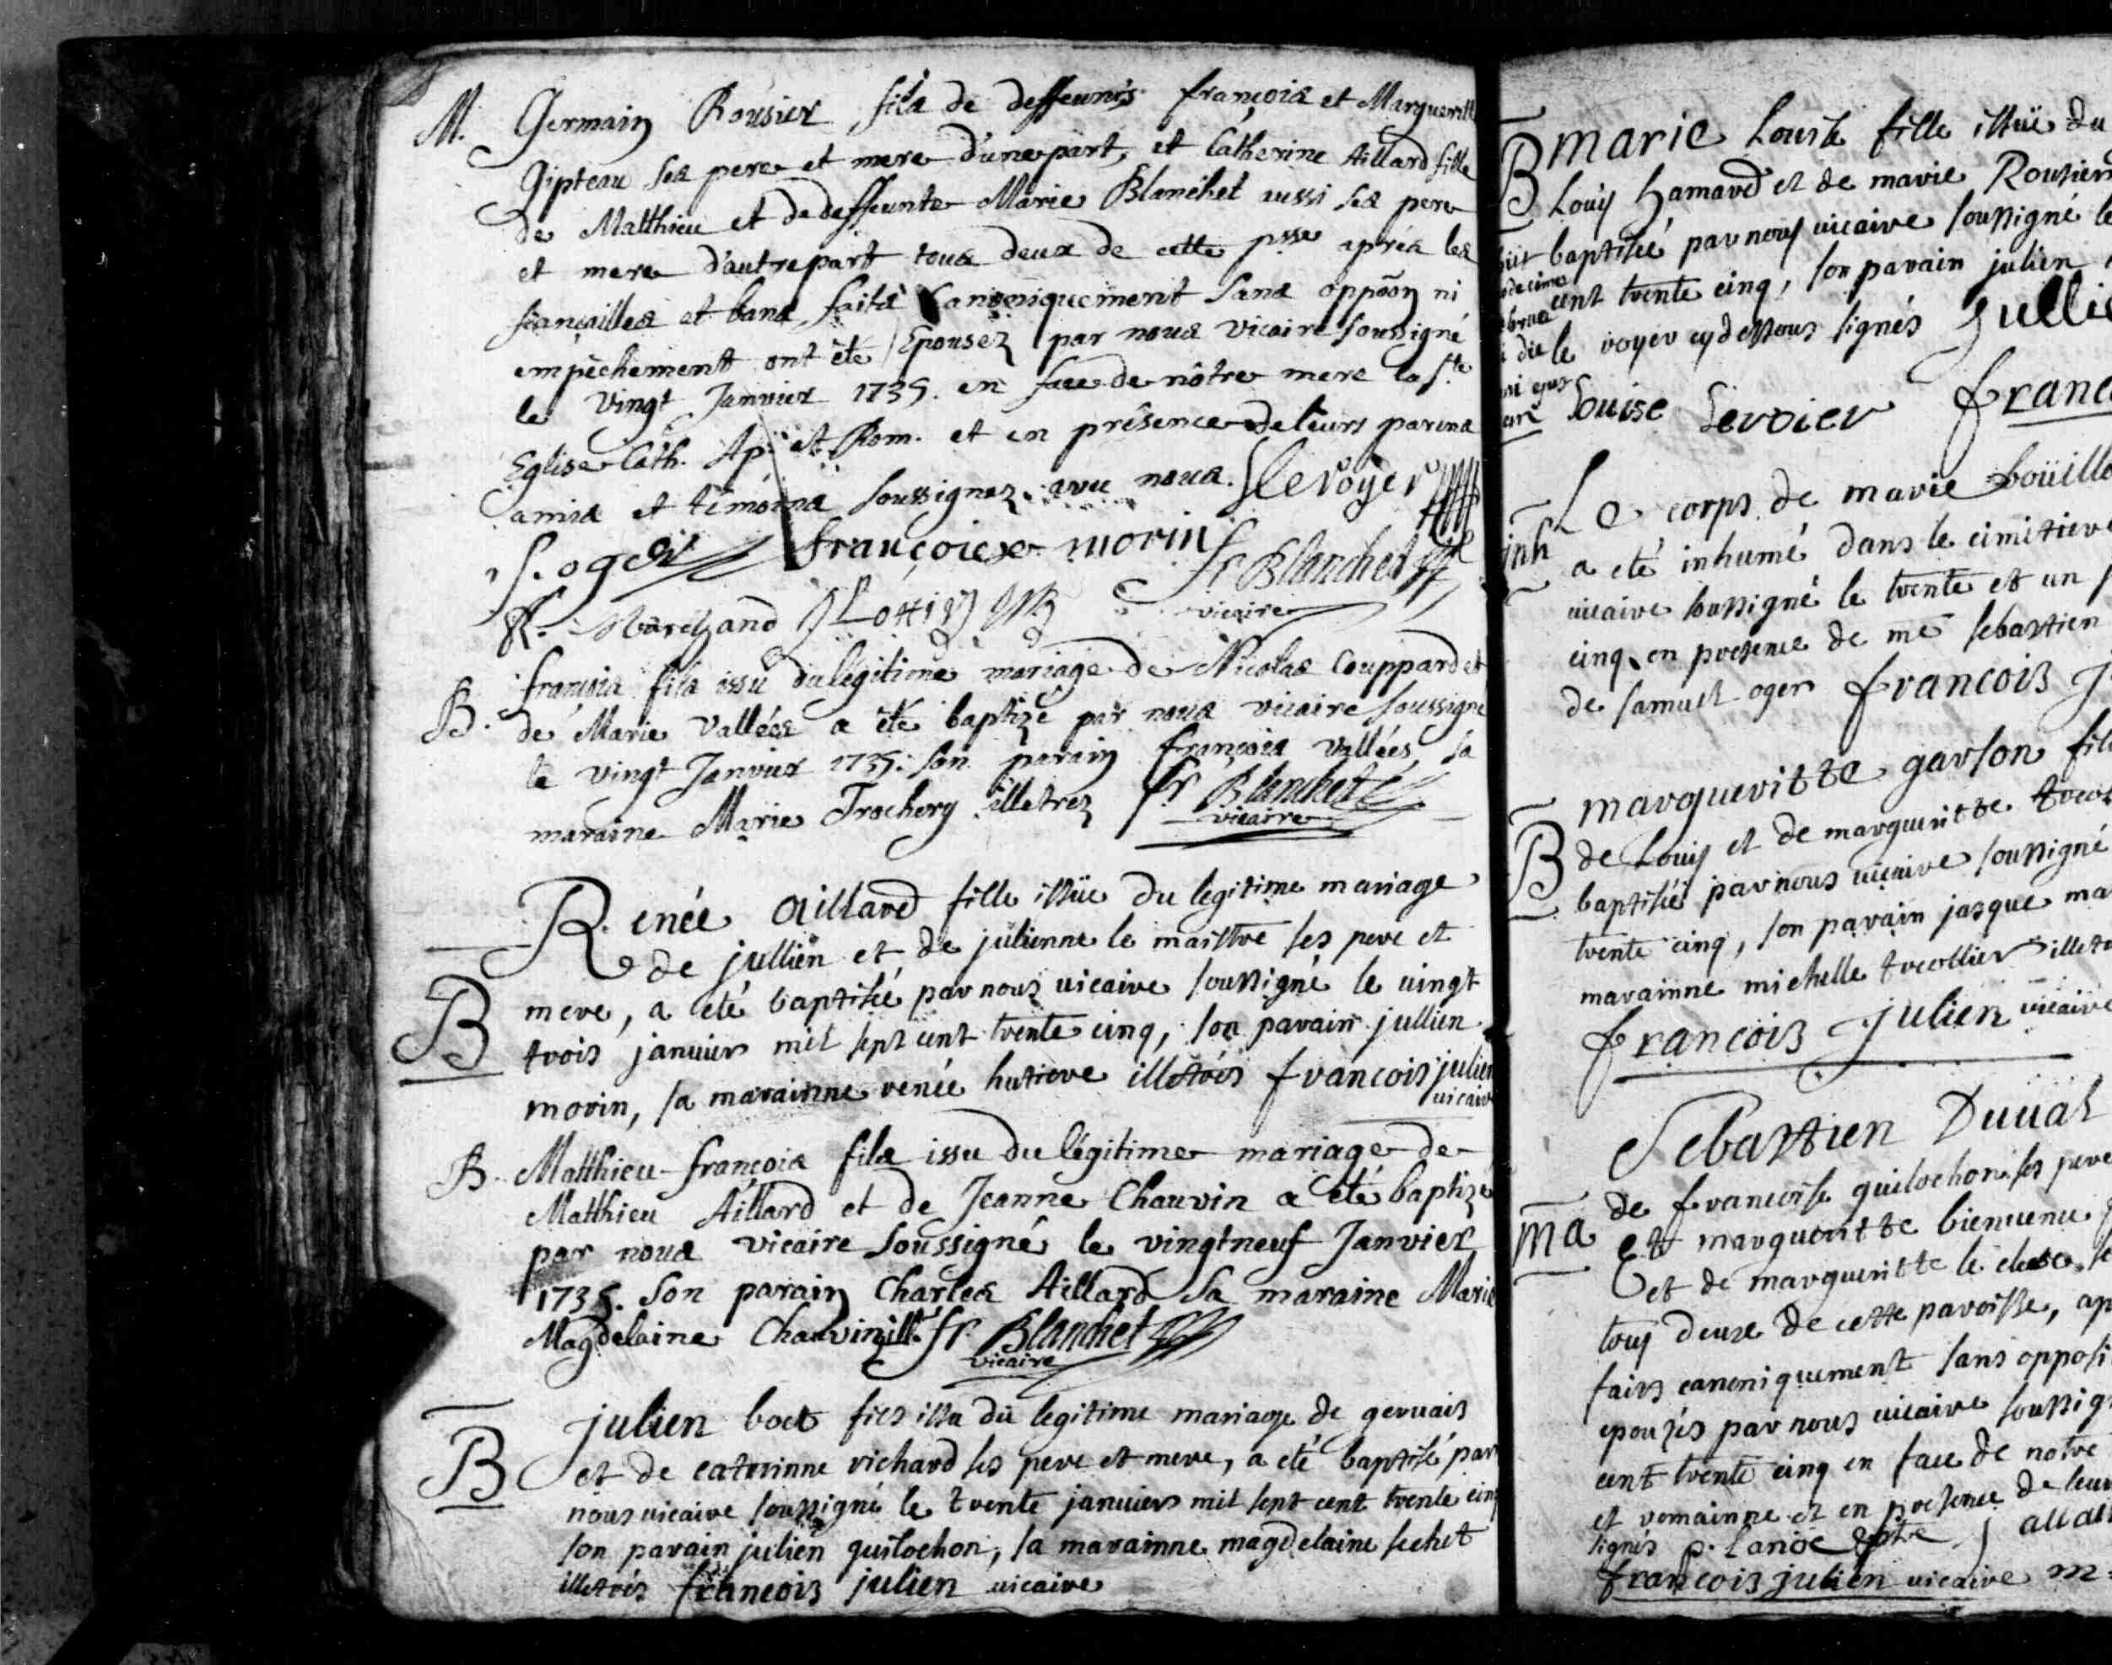 M. Germain Rousier fils de deffunts françois et Margueritte
Gipteau ses pere et mere d'une part, et Catherine Aillard fille
de Matthieu et de deffeunte Marie Blanchet aussi ses pere
et mere d'autre part tous deux de cette psse après les
fiançailles et bans faits Canoniquement sans oppõon ni
empêchement ont été Epousez par nous vicaire soussigné
le vingt Janvier 1735. en face de nôtre mere la Ste
Eglise Cath. Ap. et Rom. et en présence de leurs parens
amis et témoins soussignez avec nous. leroyer
S. oger françoise morin fr Blanchet
Marchand J Lottin vicaire
B. françois fils issu du légitime mariage de Nicolas Couppard et
de Marie Vallées a été baptizé par nous vicaire soussigné
le vingt Janvier 1735. son parain françois Vallées, sa
maraine Marie Trochery illetrez fr Blanchet
vicaire
Renée aillard fille issüe du legitime mariage
de jullien et de julienne le maistre ses pere et
B mere, a eté baptisée par nous vicaire soussigné le vingt
trois januier mil sept cent trente cinq, son parain jullien
morin, sa marainne renée hutiere illetrés francois julien
vicaire
B. Matthieu-françois fils issu du légitime mariage de
Matthieu Aillard et de Jeanne Chauvin a été baptizé
par nous vicaire soussigné le vingtneuf Janvier
1735. Son parain Charles Aillard Sa maraine Marie
Magdelaine Chauvin illt. fr. Blanchet
vicaire
julien boet fils issu du legitime mariage de geruais
B et de caterinne richard ses pere et mere, a eté baptisé par
nous vicaire soussigné le trente januier mil sept cent trente cinq
son parain julien guilochon, sa marainne magdelaine sechet
illetrés francois julien uicaire
marie Louise fille issüe du
B Louis hamard et de marie Rousier
baptisée par nous uicaire soussigné le
cent trente cinq, son parain julien
le royer cy dessous signés Jullie
Louise Leroier franc
Le corps de marie boüille
inh a eté inhumé dans le cimetiere
uicaire soussigné le trente et un
cinq en presence de me sebastien
de samuel oger francois J
margueritte garson fille
B de Louis et de margueritte
baptisée par nous uicaire soussigné
trente cinq, son parain jasque ma
marainne michelle trecollier illetr
francois julien uicaire
Sebastien Duual
de francoise guilochon ses pere
ma et margueritte bienuenu
et de margueritte le
tous deux de cette paroisse, ap
fairs canoniquement sans opposi
epousés par nous uicaire soussig
cent trente cinq en face de notre
et romainne et en presence de leur
signés p. Lanoe
francois julien uicaire